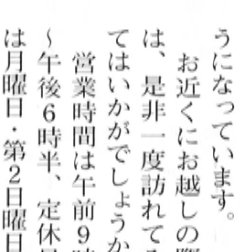 うになっています。
お近くにお越しの際
は、是非一度訪れてみ
てはいかがでしょうか
営業時間は午前9時
〜午後6時半、定休日
は月曜日・第2日曜日